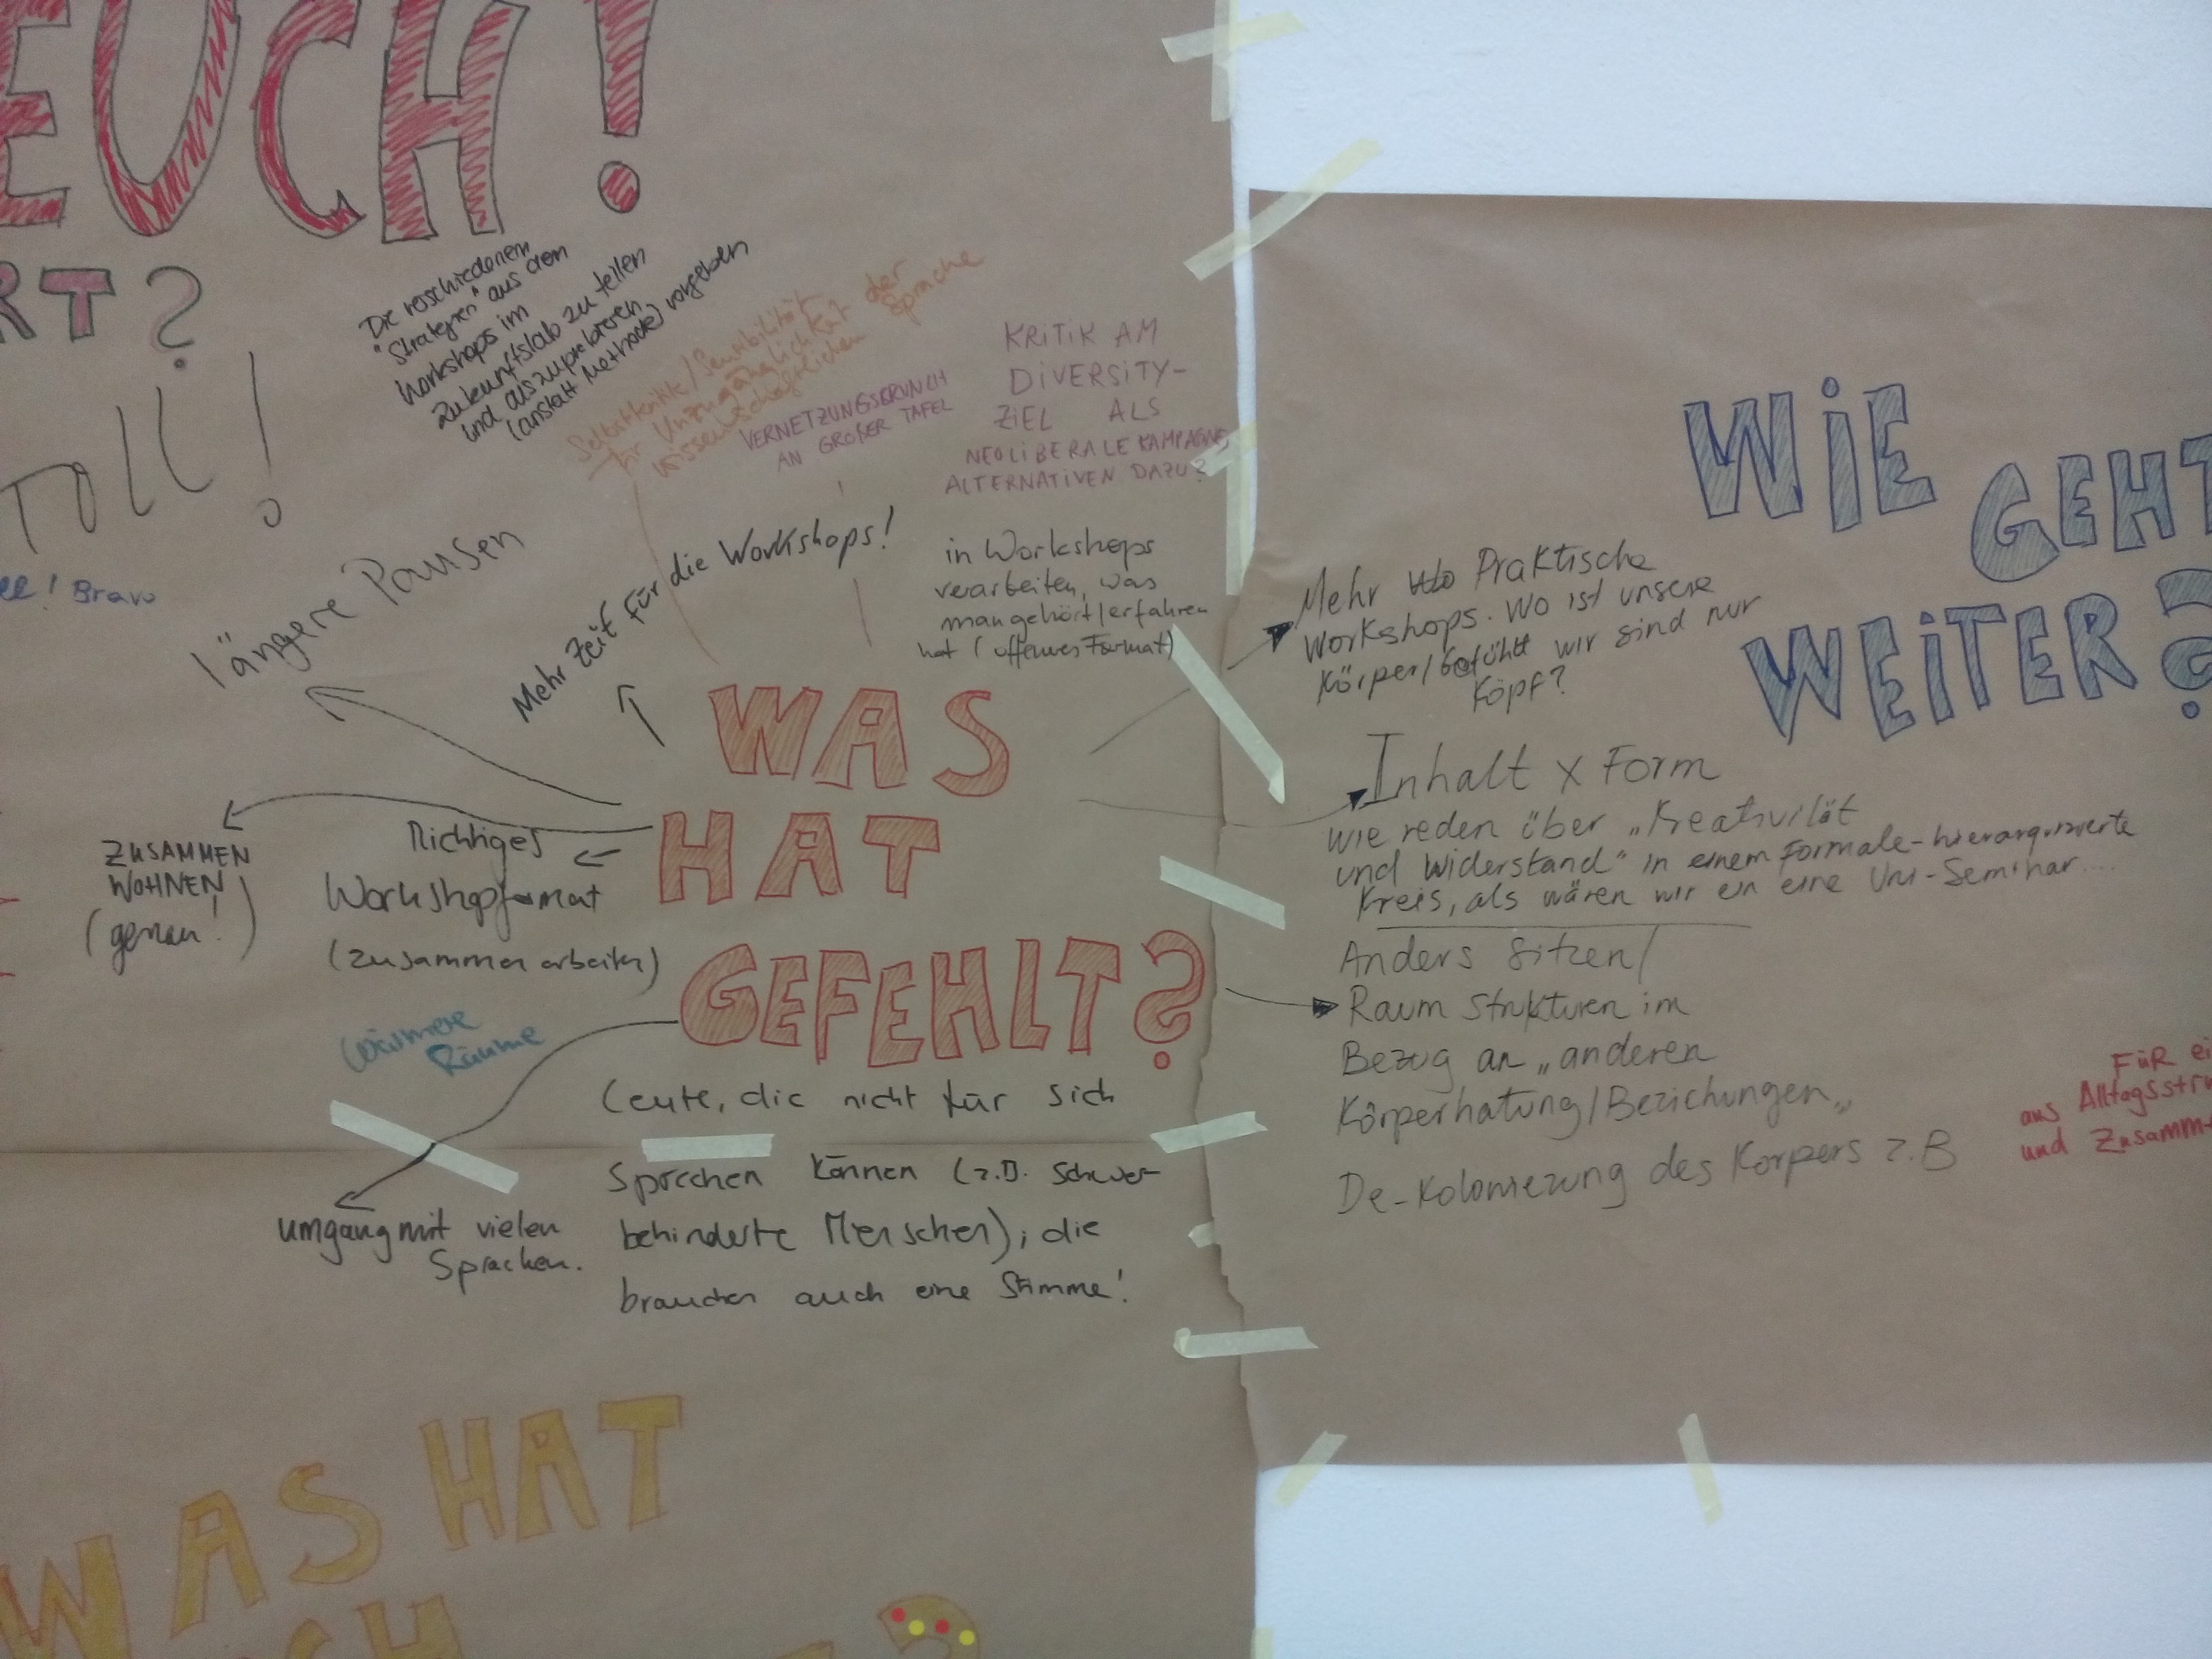 EUCH!
RT?
TOLL!
! Bravo
Die verschiedenen
"Strategien" aus den
Workshops im
Zukunftslab zu teilen
und auszuprobieren
(anstatt Methode) vorgeben
Selbstkritik/Sensibilität
für Unzugänglichkeit der
wissenschaftlichen Sprache
VERNETZUNGSBRUNCH
AN GROßER TAFEL
KRITIK AM
DIVERSITY-
ZIEL ALS
NEOLIBERALE KAMPAGNE
ALTERNATIVEN DAZU?
längere Pausen
Mehr Zeit für die Workshops!
in Workshops
verarbeiten, was
man gehört/erfahren
hat (offenes Format)
WAS
HAT
GEFEHLT?
ZUSAMMEN
WOHNEN
(genau!)
Richtiges
Workshopformat
(zusammen arbeiten)
Wärmere
Räume
Leute, die nicht für sich
sprechen können (z.B. schwer-
behinderte Menschen); die
brauchen auch eine Stimme!
umgang mit vielen
Sprachen.
WAS HAT
CH
?
WIE GEHT
WEITER?
Mehr Praktische
Workshops. Wo ist unsere
Körper/Gefühl wir sind nur
Kopf?
Inhalt x Form
wie reden über „Kreativität
und Widerstand" in einem formale-hierarquizierte
Kreis, als wären wir in eine Uni-Seminar....
Anders sitzen/
Raum Strukturen im
Bezug an „anderen
Körperhatung/Beziehungen„
De-Kolonierung des Korpers z.B
FÜR ei
aus Alltagsstru
und Zusamm